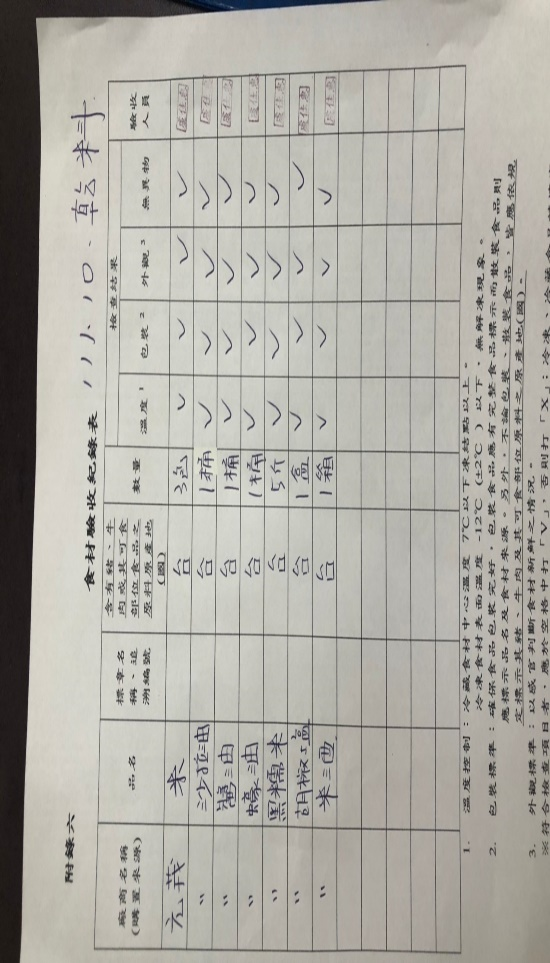 附錄六
食材驗收紀錄表 111.10. 乾米斗
廠商名稱(購置來源) 品名 標章名稱、追溯編號 含有豬、牛肉或其可食部位食品之原料原產地(國) 數量 檢查結果 驗收人員
溫度¹ 包裝² 外觀³ 無異物
米 台 3包 ✓ ✓ ✓ ✓
〃 沙拉油 台 1桶 ✓ ✓ ✓ ✓
〃 醬油 台 1桶 ✓ ✓ ✓ ✓
〃 蠔油 台 1桶 ✓ ✓ ✓ ✓
〃 黑糯米 台 5斤 ✓ ✓ ✓ ✓
〃 胡椒鹽 台 1盒 ✓ ✓ ✓ ✓
〃 米酒 台 1箱 ✓ ✓ ✓ ✓
1. 溫度控制：冷藏食材中心溫度 7℃以下凍結點以上。
冷凍食材表面溫度 -12℃ (±2℃) 以下，無解凍現象。
2. 包裝標準：確保食品包裝完好，包裝食品應有完整食品標示而散裝食品則
應標示品名及食材來源。另外，不論包裝、散裝食品，皆應依規
定標示其豬、牛肉及其可食部位原料之原產地(國)。
3. 外觀標準：以感官判斷食材新鮮之情況。
※符合檢查項目者，應於空格中打「V」，否則打「X」；冷凍、冷藏食品